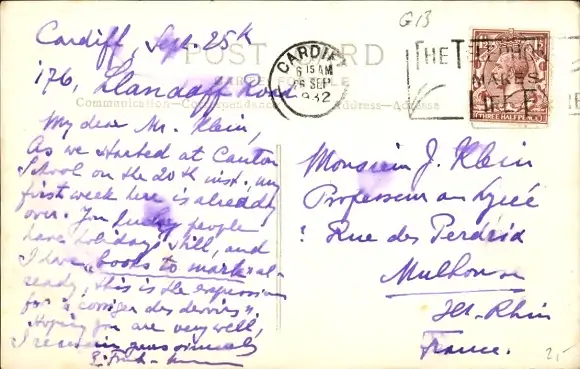 Cardiff, Sept. 25th
176, Llandaff Road
My dear Mr. Klein,
As we started at Canton
School on the 20th inst. my
first week here is already
over. You lucky people
have holidays still, and
I have "books to mark" al-
ready, this is the expression
for "corriger des devoirs".
Hoping you are very well,
I remain yours sincerely
POST CARD
Communication—Correspondence
Address—Adresse
GB
CARDIFF
6 15 AM
26 SEP
1932
THE TELEPHONE
MAKES
LIFE
THREE HALF PENCE
Monsieur J. Klein
Professeur au Lycée
Rue des Perdrix
Mulhouse
Ht-Rhin
France.
2,-